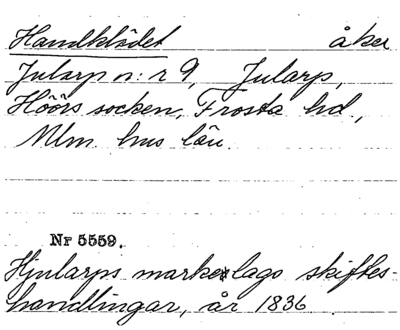 Handklädet åker
Jularp n:r 9, Jularp,
Höörs socken, Frosta hd,
Mlm hus län.
Nr 5559.
Hjularps markelags skiftes-
handlingar, år 1836